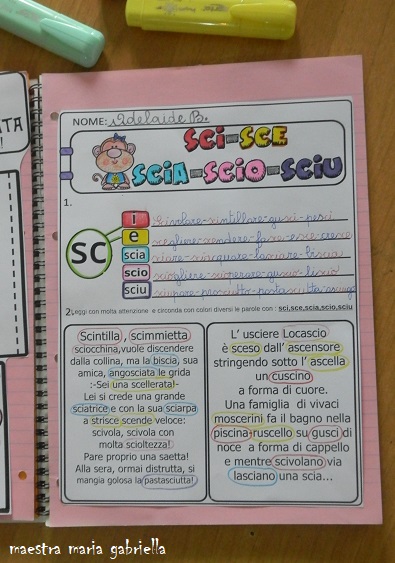 NOME: Adelaide B.
SCI-SCE
SCIA-SCIO-SCIU
1.
SC
i
scivolare-scintillare-gusci-pesci
e
scegliere-scendere-fasce-esce-cresce
scia
sciare-sciacquare-lasciare-liscia
scio
sciogliere-scioperare-guscio-liscio
sciu
sciupare-prosciutto-pastasciutta
2.Leggi con molta attenzione e circonda con colori diversi le parole con : sci,sce,scia,scio,sciu
Scintilla , scimmietta
sciocchina,vuole discendere
dalla collina, ma la biscia, sua
amica, angosciata le grida
:-Sei una scellerata!-
Lei si crede una grande
sciatrice e con la sua sciarpa
a strisce scende veloce:
scivola, scivola con
molta scioltezza!
Pare proprio una saetta!
Alla sera, ormai distrutta, si
mangia golosa la pastasciutta!
L' usciere Locascio
è sceso dall' ascensore,
stringendo sotto l' ascella
un cuscino
a forma di cuore.
Una famiglia di vivaci
moscerini fa il bagno nella
piscina-ruscello su gusci di
noce a forma di cappello
e mentre scivolano via
lasciano una scia...
maestra maria gabriella